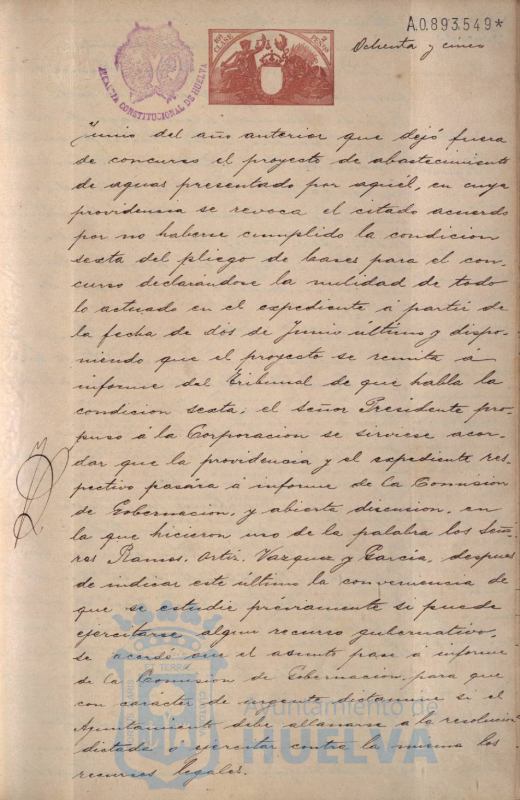 A.0.893.549*
Ochenta y cinco
10ª CLASE
2 PESETAS
ALCALDIA CONSTITUCIONAL DE HUELVA
Junio del año anterior que dejó fuera
de concurso el proyecto de abastecimiento
de aguas presentado por aquél, en cuya
providencia se revoca el citado acuerdo
por no haberse cumplido la condicion
sexta del pliego de bases para el con-
curso declarándose la nulidad de todo
lo actuado en el expediente á partir de
la fecha de dós de Junio último y dispo-
niendo que el proyecto se remita á
informe del Tribunal de que habla la
condicion sexta; el señor Presidente pro-
puso á la Corporacion se sirviese acor-
dar que la providencia y el expediente res-
pectivo pasára á informe de la Comision
de Gobernacion, y abierta discusion, en
la que hicieron uso de la palabra los Seño-
res Ramos, Ortiz, Vazquez y García, despues
de indicar este último la conveniencia de
que se estudie préviamente si puede
ejercitarse algun recurso gubernativo,
se acordó que el asunto pase á informe
de la Comision de Gobernacion, para que
con carácter de urgente dictamine si el
Ayuntamiento debe allanarse á la resolucion
dictada o ejercitar contra la misma los
recursos legales.
Ayuntamiento de
HUELVA